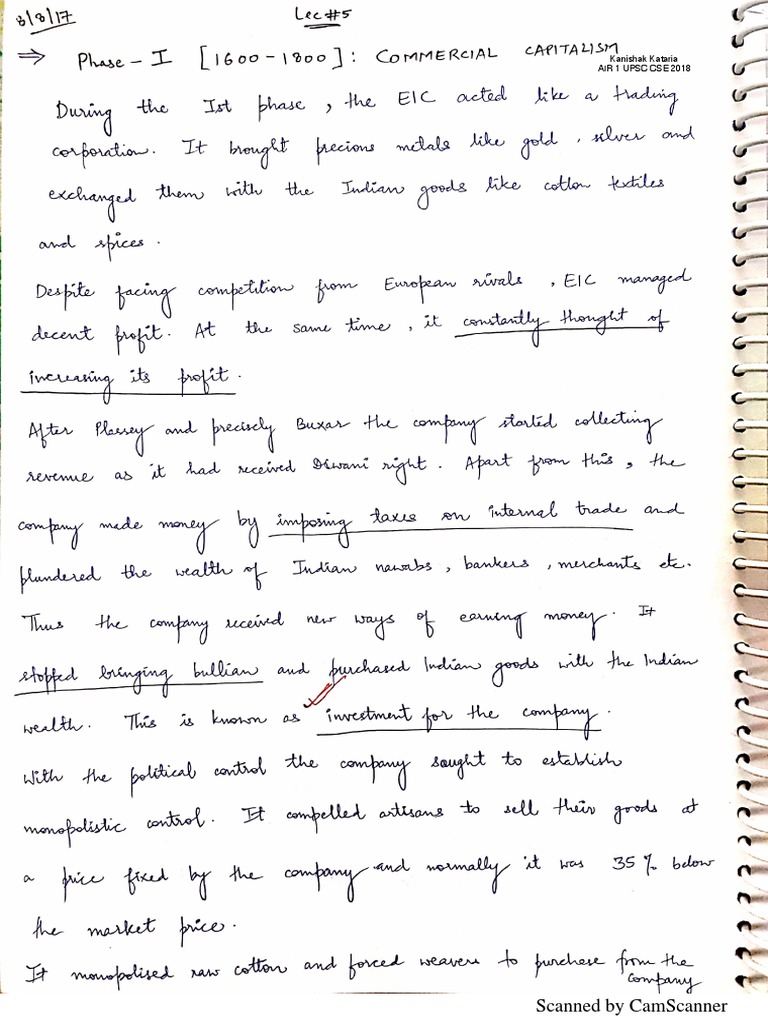 8/8/17
Lec#5
⇒ Phase-I [1600-1800]: COMMERCIAL CAPITALISM
Kanishak Kataria
AIR 1 UPSC CSE 2018
During the Ist phase, the EIC acted like a trading
corporation. It brought precious metals like gold, silver and
exchanged them with the Indian goods like cotton textiles
and spices.
Despite facing competition from European rivals, EIC managed
decent profit. At the same time, it constantly thought of
increasing its profit.
After Plassey and precisely Buxar the company started collecting
revenue as it had received Diwani right. Apart from this, the
company made money by imposing taxes on internal trade and
plundered the wealth of Indian nawabs, bankers, merchants etc.
Thus the company received new ways of earning money. It
stopped bringing bullian and purchased Indian goods with the Indian
wealth. This is known as investment for the company.
With the political control the company sought to establish
monopolistic control. It compelled artisans to sell their goods at
a price fixed by the company and normally it was 35% below
the market price.
It monopolised raw cotton and forced weavers to purchase from the
company
Scanned by CamScanner